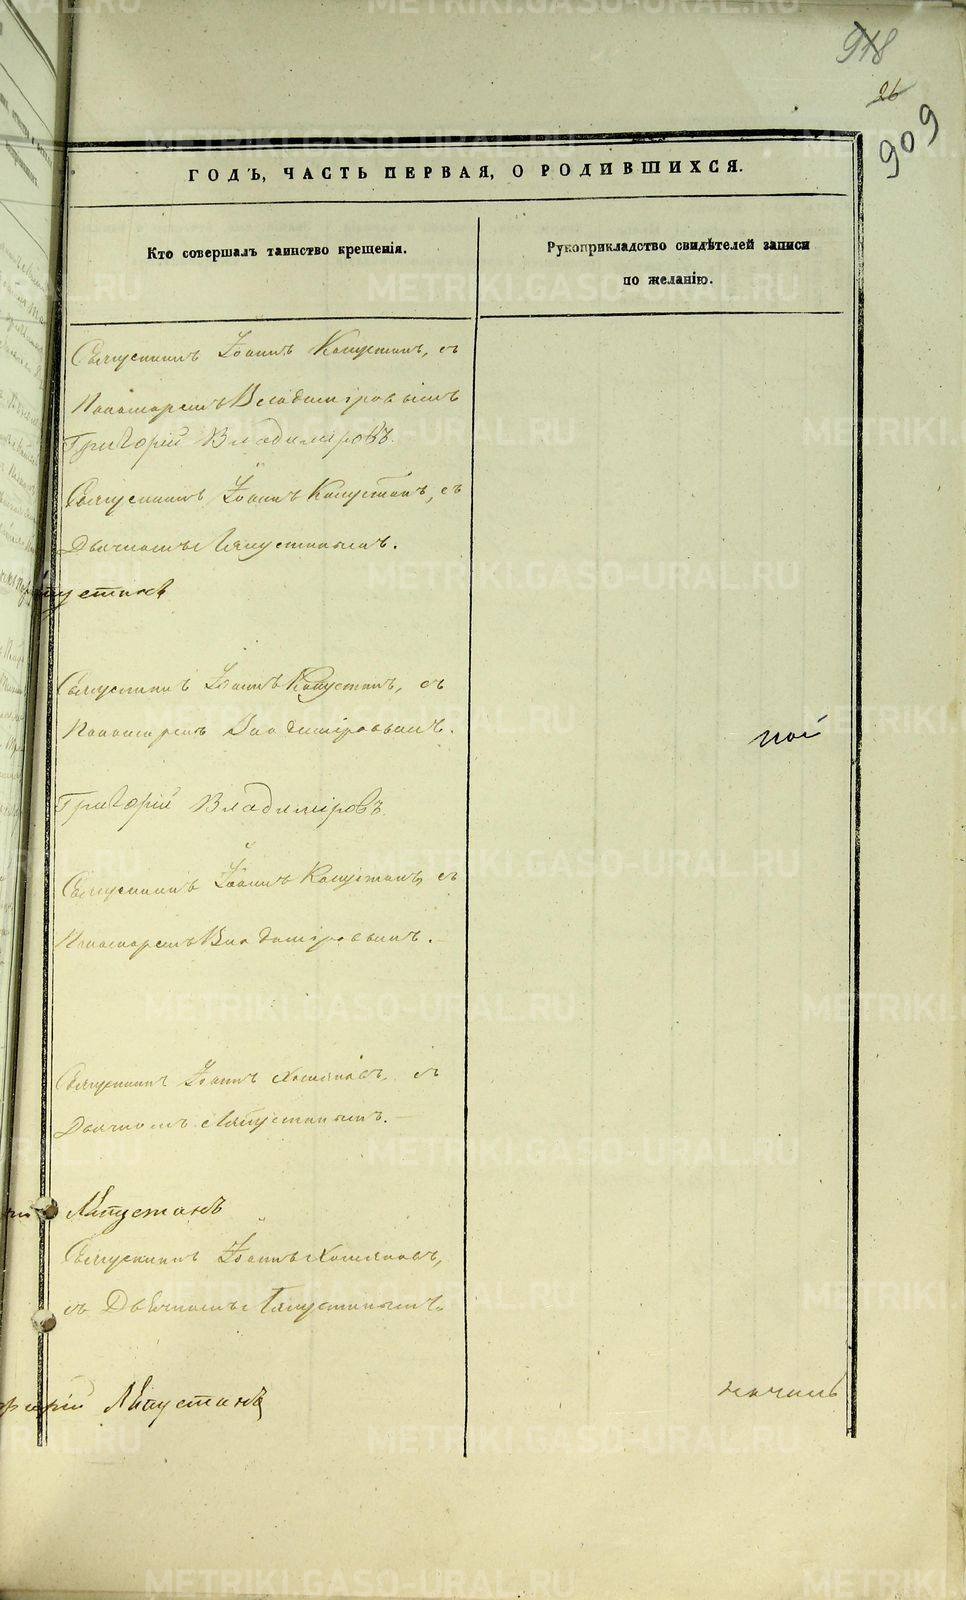 918
26
909
ГОДЪ, ЧАСТЬ ПЕРВАЯ, О РОДИВШИХСЯ.
Кто совершалъ таинство крещенія.
Рукоприкладство свидѣтелей записи
по желанію.
Священникъ Іоаннъ Капустинъ, съ
Пономаремъ Владиміровымъ
Григорій Владиміровъ.
Священникъ Іоаннъ Капустинъ, съ
Дьячкомъ Ляпустинымъ.
Священникъ Іоаннъ Капустинъ, съ
Пономаремъ Владиміровымъ.
Григорій Владиміровъ
Священникъ Іоаннъ Капустинъ, съ
Пономаремъ Владиміровымъ.
Священникъ Іоаннъ Хомяковъ, съ
Дьячкомъ Ляпустинымъ.
Ляпустинъ
Священникъ Іоаннъ Хомяковъ,
съ Дьячкомъ Ляпустинымъ.
Ляпустинъ
METRIKI.GASO-URAL.RU